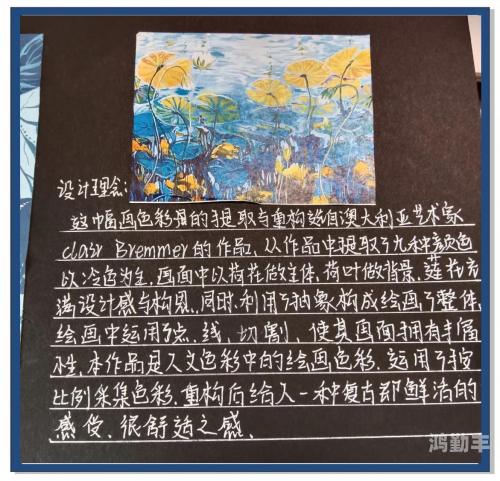 设计理念:
这幅画色彩的提取与重构说自澳大利亚艺术家
clair Bremmer的作品,从作品中提取了九种颜色
以冷色为主,画面中以荷花做主体,荷叶做背景,莲花充
满设计感与构思,同时,利用了抽象构成绘画了整体,
绘画中运用了点、线、切割,使其画面拥有丰富
性,本作品是人文色彩中的绘画色彩,运用了按
比例采集色彩,重构后给人一种复古即鲜活的
感受,很舒适之感、
鸿勤丰